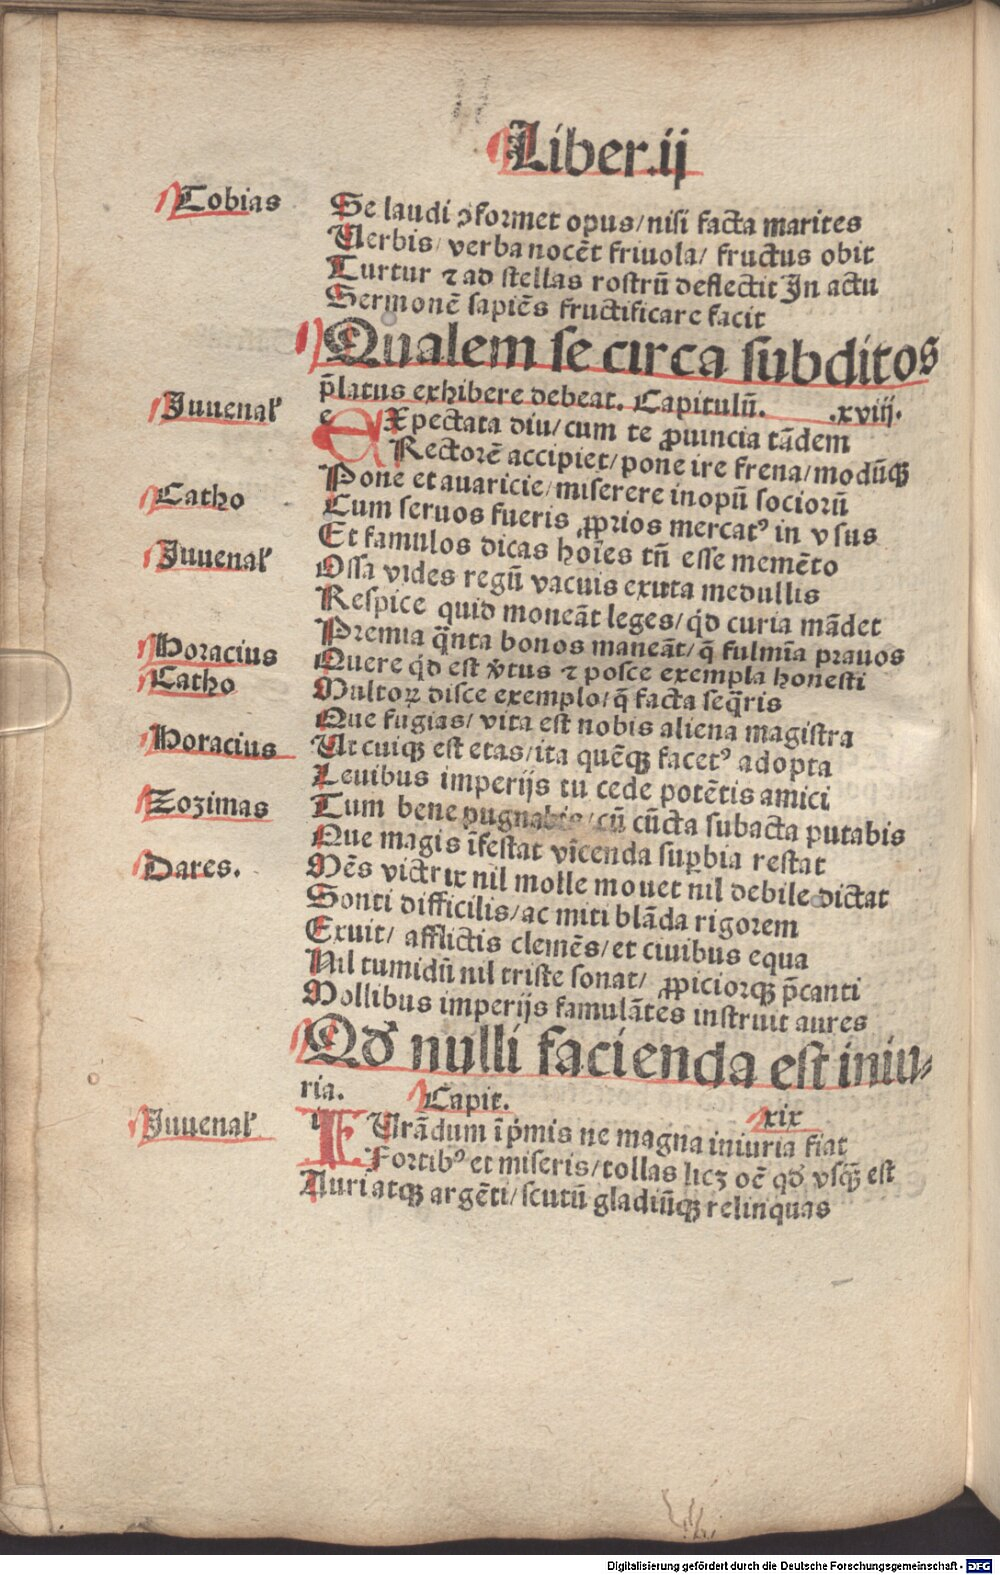 Liber.ij
Tobias Se laudi ɔformet opus/nisi facta marites
Verbis/ verba nocẽt friuola/ fructus obit
Turtur ⁊ ad stellas rostrũ deflectit In actu
Sermonẽ sapiẽs fructificare facit
Qualem se circa subditos
p̃latus exhibere debeat. Capitulũ. .xviij.
Juuenal' e Expectata diu/cum te ꝓuincia tãdem
Rectorẽ accipiet/pone ire frena/modũꝗ
Pone et auaricie/miserere inopũ sociorũ
Catho Cum seruos fueris ꝓprios mercatꝰ in vsus
Et famulos dicas hoĩes tñ esse memẽto
Juuenal' Ossa vides regũ vacuis exuta medullis
Respice quid moneãt leges/ qd̓ curia mãdet
Premia q̃nta bonos maneãt/ q̃ fulmĩa prauos
Horacius Quere qd̓ est v̓tus ⁊ posce exempla honesti
Catho Multoꝝ disce exemplo/ q̃ facta seq̃ris
Que fugias/ vita est nobis aliena magistra
Horacius Ut cuiqꝫ est etas/ita quẽqꝫ facetꝰ adopta
Leuibus imperijs tu cede potẽtis amici
Zozimas Tum bene pugnabis/cũ cũcta subacta putabis
Que magis ĩfestat vĩcenda suꝑbia restat
Dares. Mẽs victrix nil molle mouet nil debile dictat
Sonti difficilis/ac miti blãda rigorem
Exuit/ afflictis clemẽs/et ciuibus equa
Nil tumidũ nil triste sonat/ ꝓpiciorqꝫ p̃canti
Mollibus imperijs famulãtes instruit aures
Qd̓ nulli facienda est iniu⸗
ria. Capit. xix
Juuenal' i Curãdum ĩp̃mis ne magna iniuria fiat
Fortibꝰ et miseris/tollas licꝫ oẽ qd̓ vsqꝫ̃ est
Auri atqꝫ argẽti/scutũ gladiũqꝫ relinquas
Digitalisierung gefördert durch die Deutsche Forschungsgemeinschaft - DFG